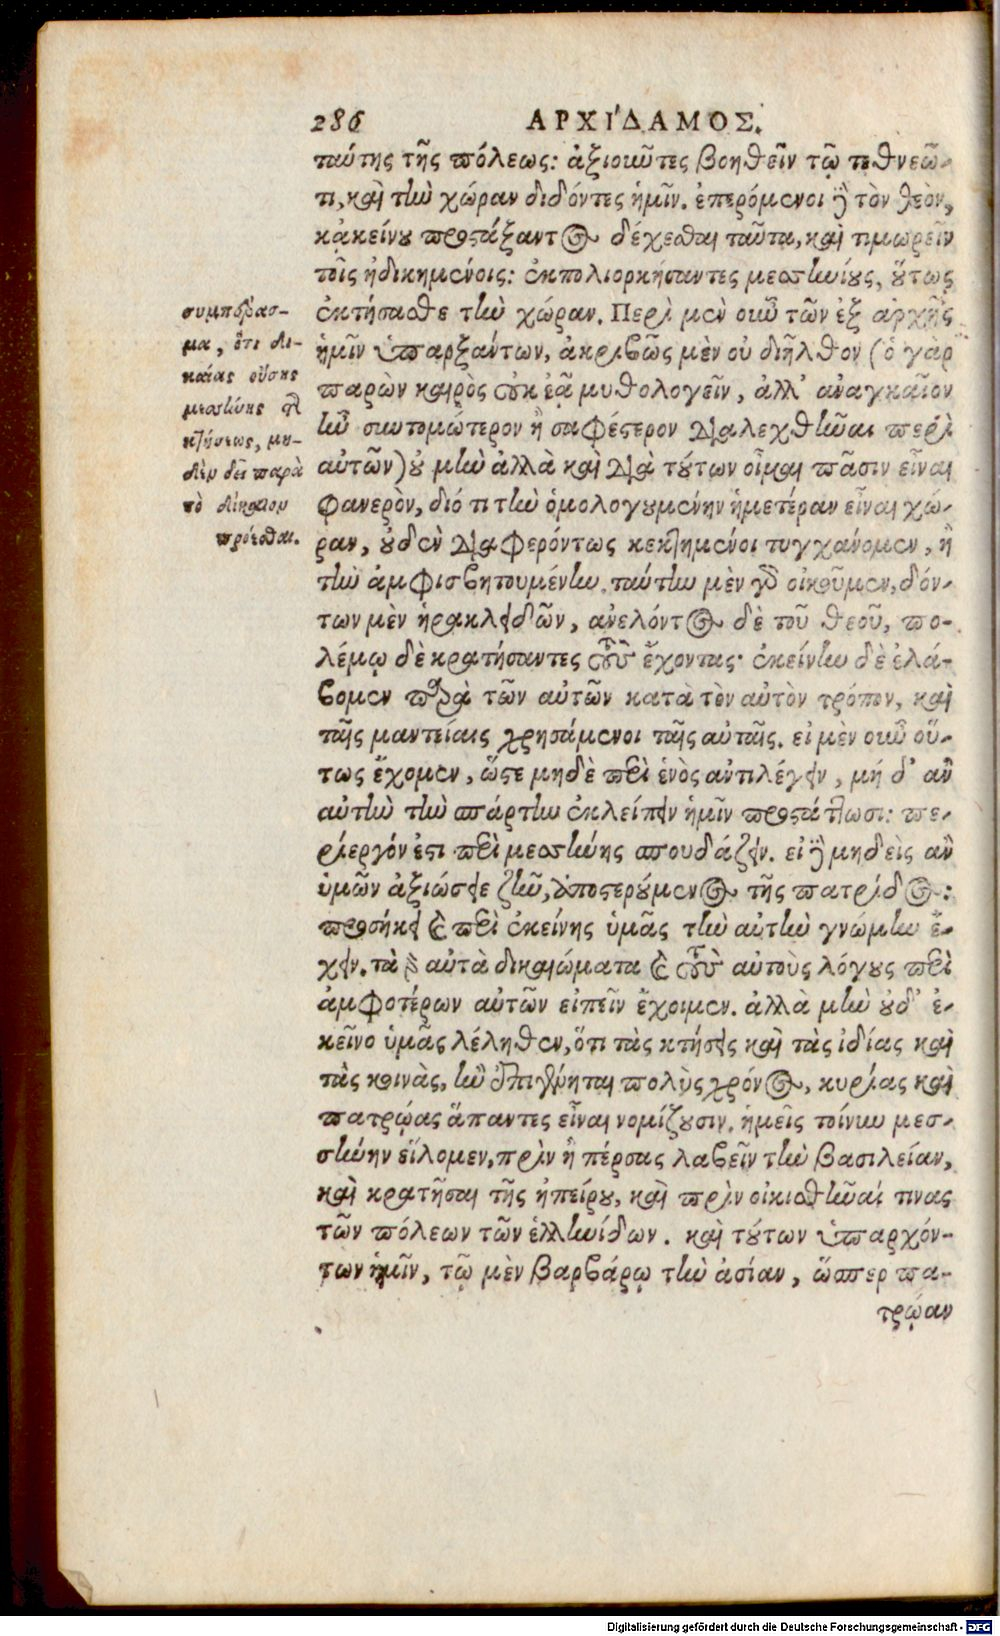 286
ΑΡΧΙ´ΔΑΜΟΣ.
ταύτης τῆς πόλεως: ἀξιοιοῦτες βοηθεῖν τῷ τεθνεῶ-
τι, καὶ τὴν χώραν διδόντες ἡμῖν. ἐπερόμενοι δὲ τὸν θεὸν,
κἀκείνου προστάξαντος δέχεσθαι ταῦτα, καὶ τιμωρεῖν
τοῖς ἠδικημένοις: ἐκπολιορκήσαντες μεσσηνίους, οὕτως
ἐκτήσασθε τὴν χώραν. Περὶ μὲν οὖν τῶν ἐξ ἀρχῆς
ἡμῖν ὑπαρξάντων, ἀκριβῶς μὲν οὐ διῆλθον (ὁ γὰρ
παρὼν καιρὸς οὐκ ἐᾷ μυθολογεῖν, ἀλλ' ἀναγκαῖον
ἦν συντομώτερον ἢ σαφέστερον διαλεχθῆναι περὶ
αὐτῶν) οὐ μὴν ἀλλὰ καὶ διὰ τούτων οἶμαι πᾶσιν εἶναι
φανερὸν, διό τι τὴν ὁμολογουμένην ἡμετέραν εἶναι χώ-
ραν, οὐδὲν διαφερόντως κεκτημένοι τυγχάνομεν, ἢ
τὴν ἀμφισβητουμένην. ταύτην μὲν γὰρ οἰκοῦμεν, δόν-
των μὲν ἡρακλειδῶν, ἀνελόντος δὲ τοῦ θεοῦ, πο-
λέμῳ δὲ κρατήσαντες τοὺς ἔχοντας· ἐκείνην δὲ ἐλά-
βομεν παρὰ τῶν αὐτῶν κατὰ τὸν αὐτὸν τρόπον, καὶ
ταῖς μαντείαις χρησάμενοι ταῖς αὐταῖς. εἰ μὲν οὖν οὕ-
τως ἔχομεν, ὥστε μηδὲ περὶ ἑνὸς ἀντιλέγειν, μή δ' ἂν
αὐτὴν τὴν σπάρτην ἐκλείπειν ἡμῖν προστάττωσι: πε-
ρίεργόν ἐστι περὶ μεσσήνης σπουδάζειν. εἰ δὲ μηδεὶς ἂν
ὑμῶν ἀξιώσειε ζῆν, ἀποστερούμενος τῆς πατρίδος:
προσήκει καὶ περὶ ἐκείνης ὑμᾶς τὴν αὐτὴν γνώμην ἔ-
χειν. τὰ γὰρ αὐτὰ δικαιώματα καὶ τοὺς αὐτοὺς λόγους περὶ
ἀμφοτέρων αὐτῶν εἰπεῖν ἔχοιμεν. ἀλλὰ μὴν οὐδ' ἐ-
κεῖνο ὑμᾶς λέληθεν, ὅτι τὰς κτήσεις καὶ τὰς ἰδίας καὶ
τὰς κοινὰς, ἢν ἐπιγένηται πολὺς χρόνος, κυρίας καὶ
πατρῴας ἅπαντες εἶναι νομίζουσιν. ἡμεῖς τοίνυν μεσ-
σήνην εἵλομεν, πρὶν ἢ πέρσας λαβεῖν τὴν βασιλείαν,
καὶ κρατῆσαι τῆς ἠπείρου, καὶ πρὶν οἰκισθῆναί τινας
τῶν πόλεων τῶν ἑλληνίδων. καὶ τούτων ὑπαρχόν-
των ἡμῖν, τῷ μὲν βαρβάρῳ τὴν ἀσίαν, ὥσπερ πα-
τρῴαν
συμπέρασ-
μα, ὅτι δι-
καίας οὔσης
μεσσήνης τῆς
κτήσεως, μη-
δὲν δεῖ παρὰ
τὸ δίκαιον
πρόεσθαι.
Digitalisierung gefördert durch die Deutsche Forschungsgemeinschaft - DFG